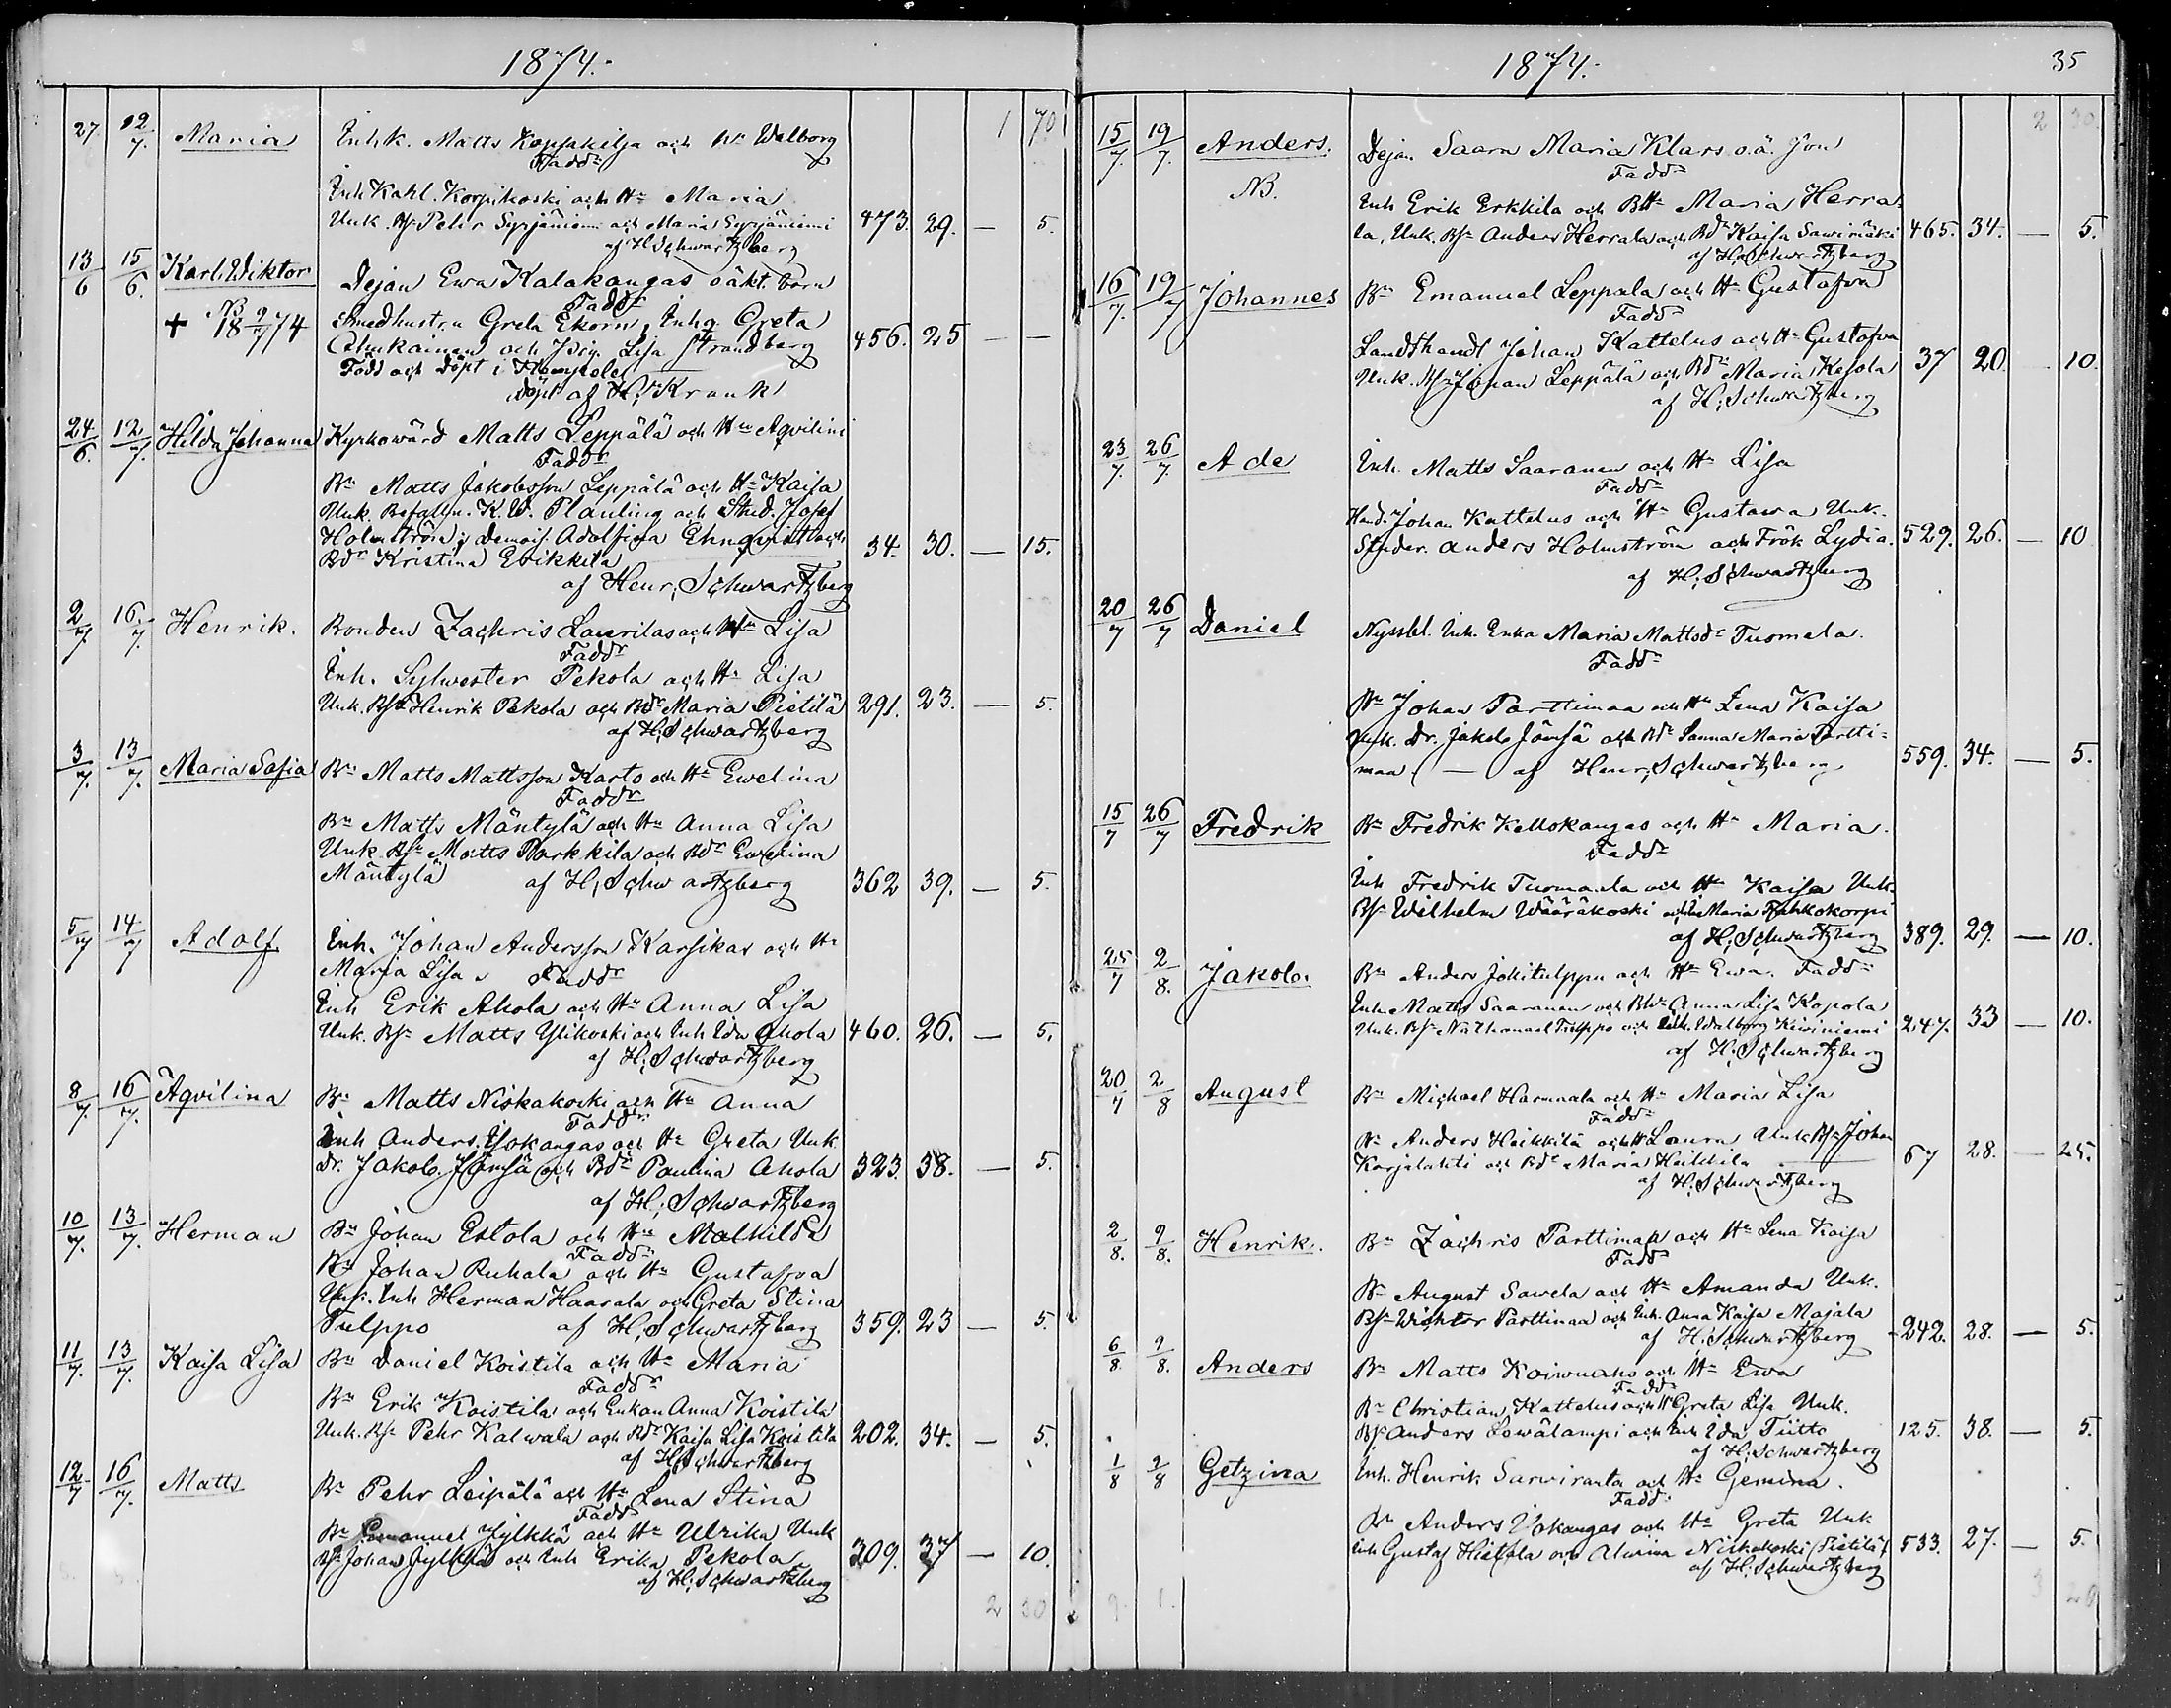 1874.
1 70
27 12/7. Maria Inhk. Matts Koppakilja och Hu Walborg
Faddr
Inh Kahl. Korpikoski och Hu Maria
Unk. Bs Pehr Syrjäniemi och Maria Syrjäniemi 473. 29. — 5.
af H Schwartzberg
13/6 15/6. Karl Wiktor Dejan Ewa Kalakangas oäkt. barn
Faddr
+ 18 9/7 74 Smedhustru Greta Ekorn, Inh Greta
och Pig. Lisa Strandberg 456. 25 — —
Född och döpt i Kempele
döpt af H. Krank
24/6. 12/7. Hilda Johanna Kyrkowärd Matts Leppälä och Hu Aqvilina
Faddr
Bn Matts Jakobsson Leppälä och Hu Kaisa
Unk. Befallm. K. W. Planting och Stud. Josef
Holmström, Demois. Adolfina Ehnqvist och 34. 30. — 15.
Bdr Kristina Erikkila
af Henr. Schwartzberg
2/7 16/7. Henrik. Bonden Zachris Laurilas och Hu Lisa
Faddr
Inh. Sylwester Pekola och Hu Lisa
Unk. Bs Henrik Pekola och Bdr Maria Pietilä 291. 23. — 5.
af H. Schwartzberg
3/7. 13/7. Maria Sofia Bn Matts Mattsson Karto och Hu Ewelina
Faddr
Bn Matts Mäntylä och Hu Anna Lisa
Unk Bs Matts Parkkila och Bdr Ewelina
Mäntylä af H. Schwartzberg 362 39. — 5.
5/7 14/7 Adolf Inh. Johan Andersson Karsikas och Hu
Maria Lisa. Faddr
Inh Erik Ahola och Hu Anna Lisa
Unk. Bs Matts Ylikoski och Inh Ida Ahola 460. 26. — 5.
af H. Schwartzberg
8/7. 16/7. Aqvilina Bn Matts Niskakoski och Hu Anna
Faddr
Inh Anders Isokangas och Hu Greta Unk.
Dr. Jakob Jämsä och Bdr Paulina Ahola 323. 38. — 5.
af H. Schwartzberg
10/7. 13/7. Herman Bn Johan Estola och Hu Mathilda
Faddr
Bn Johan Ruhala och Hu Gustafva
Unk. Inh Herman Haarala och Greta Stina
Tulppo af H. Schwartzberg 359. 23 — 5.
11/7. 13/7. Kaisa Lisa Bn Daniel Koistila och Hu Maria
Faddr
Bn Erik Koistila och Enkan Anna Koistila
Unk. Bs Pehr Kalwala och Bdr Kaisa Lisa Koistila 202. 34. — 5.
af H. Schwartzberg
12/7 16/7. Matts Bn Pehr Leipälä och Hu Lena Stina
Faddr
Bn Emanuel Jylkkä och Hu Ulrika Unk
Bs Johan Jylkkä och Inh Erika Pekola 309. 37 — 10.
af H. Schwartzberg
2 30
1874. 35
2 30.
15/7. 19/7. Anders. Dejan Saara Maria Klars o.ä. Son
Faddr
NB. Inh Erik Erkkila och BHu Maria Herra-
la, Unk. Bs Anders Herrala och Bdr Kaisa Sawimäki 465. 34. — 5.
af H. Schwartzberg
16/7. 19/7 Johannes Bn Emanuel Leppälä och Hu Gustafva
Faddr
Landthandl Johan Kattelus och Hu Gustafva
Unk. Bs Johan Leppälä och Bdr Maria Kesola 37 20 10.
af H. Schwartzberg
23/7. 26/7. Ade Inh. Matts Saaranen och Hu Lisa
Faddr
Hand. Johan Kattelus och Hu Gustawa Unk.
Studer. Anders Holmström och Frök Lydia. 529. 26. — 10
af H. Schwartzberg
20/7 26/7 Daniel Nyssbl. Inh. Enka Maria Mattsdr Tuomela.
Faddr
Bn Johan Parttimaa och Hu Lena Kaisa
Unk. Dr. Jakob Jämsä och Bdr Sanna Maria Partti-
maa — af Henr. Schwartzberg 559. 34. — 5.
15/7 26/7 Fredrik Bn Fredrik Kellokangas och Hu Maria.
Faddr
Inh Fredrik Tuomaala och Hu Kaisa Unk.
Bs Wilhelm Wääräkoski och Maria Pahkokorpi 389. 29. — 10.
af H. Schwartzberg
25/7 2/8. Jakob. Bn Anders Jokitulppu och Hu Ewa. Faddr
Inh Matts Saaranen och Anna Lisa Kopola
Unk. Bs Nathanael Tulppo och Inh. Walborg Kiwiniemi 247. 33 — 10.
af H. Schwartzberg
20/7 2/8 August Bn Michael Harmaala och Hu Maria Lisa
Faddr
Bn Anders Heikkilä och H Laura Unk Bs Johan
Karjalahti och Bdr Maria Heikkila 67 28. — 25.
af H. Schwartzberg
2/8. 9/8. Henrik. Bn Zachris Parttimaa och Hu Lena Kaisa
Faddr
Bn August Sawela och Hu Amanda Unk.
Bs Wichtor Parttimaa och Inh. Anna Kaisa Majala 242. 28. — 5.
af H. Schwartzberg
6/8. 9/8. Anders Bn Matts Koiwuaho och Hu Ewa
Faddr
Bn Christian Kattelus och H Greta Lisa Unk.
Bs Anders Lewälampi och Inh Ida Tiitto 125. 38. — 5.
af H. Schwartzberg
1/8 9/8 Getzina Inh. Henrik Sarwiranta och Hu Gemina.
Faddr
Bn Anders Isokangas och Hu Greta Unk
Inh Gustaf Hietala och Alwina Niskakoski (Pietilä) 533. 27. — 5.
af H. Schwartzberg
9. 1. 3 20